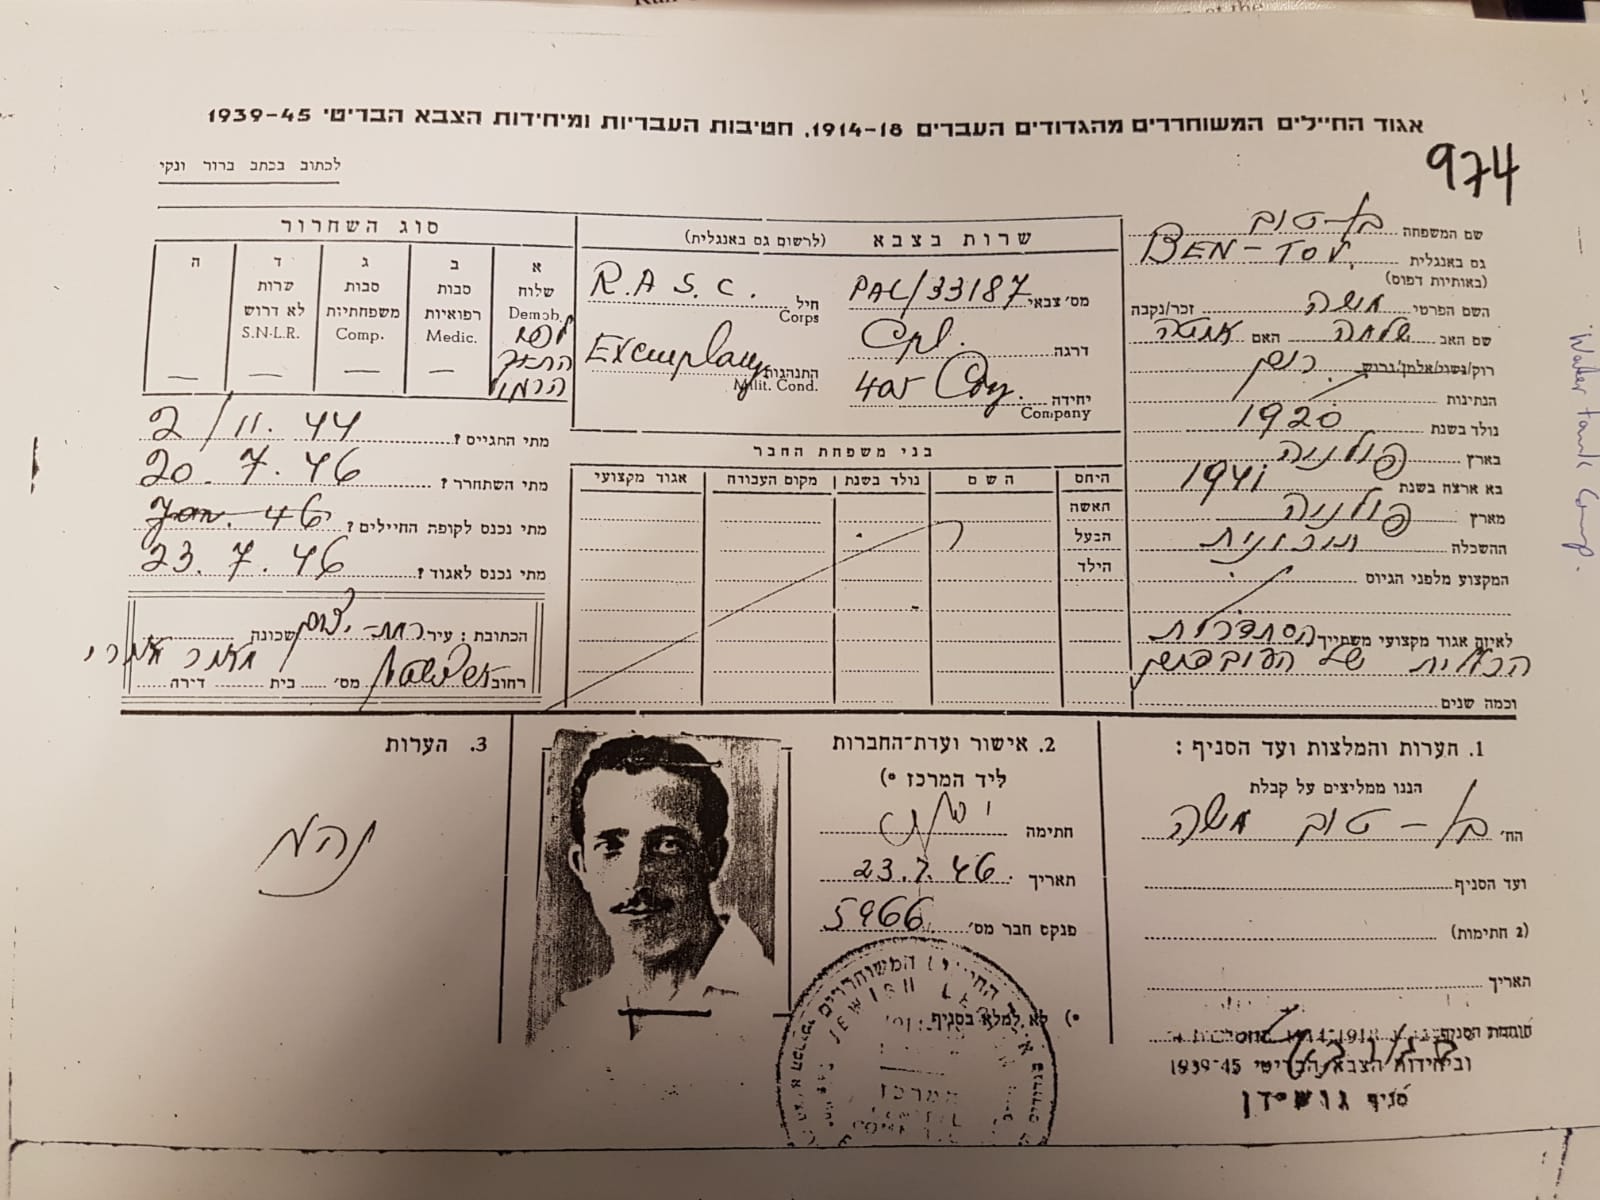 אגוד החיילים המשוחררים מהגדודים העברים 1914-18, חטיבות העבריות ומיחידות הצבא הבריטי 1939-45
974
לכתוב בכתב ברור ונקי
שם המשפחה בן-טוב
גם באנגלית BEN-TOV.
(באותיות דפוס)
השם הפרטי משה זכר/נקבה
שם האב שלמה האם
רוק/נשוי/אלמן/גרוש רווק
הנתינות
נולד בשנת 1920
בארץ פולניה
בא ארצה בשנת 1941
מארץ פולניה
ההשכלה תיכונית
המקצוע מלפני הגיוס
לאיזה אגוד מקצועי משתייך הסתדרות
הכללית של העובדים
וכמה שנים
שרות בצבא (לרשום גם באנגלית)
מס' צבאי PAL/33187
חיל R.A.S.C.
Corps
דרגה Cpl.
התנהגות Exemplary
Milit. Cond.
יחידה 405 Coy.
Company
סוג השחרור
א ב ג ד ה
שלוח סבות סבות שרות
רפואיות משפחתיות לא דרוש
Demob. Medic. Comp. S.N.L.R.
לפי
מתי התגייס? 2/11.44
מתי השתחרר? 20.7.46
מתי נכנס לקופת החיילים? Jan. 46
מתי נכנס לאגוד? 23.7.46
הכתובת: עיר שכונה
רחוב מס' בית דירה
בני משפחת החבר
היחס השם נולד בשנת מקום העבודה אגוד מקצועי
האשה
הבעל
הילד
1. הערות והמלצות ועד הסניף:
הננו ממליצים על קבלת
הח' בן-טוב משה
ועד הסניף
(2 חתימות)
תאריך
חותמת הסניף
וביחידות הצבא הבריטי 1939-45
סניף גוש-דן
2. אישור ועדת-החברות
ליד המרכז *)
חתימה
תאריך 23.7.46
פנקס חבר מס' 5966
*) לא למלא בסניף
JEWISH
המרכז
3. הערות
נהג
Water tank Comp.